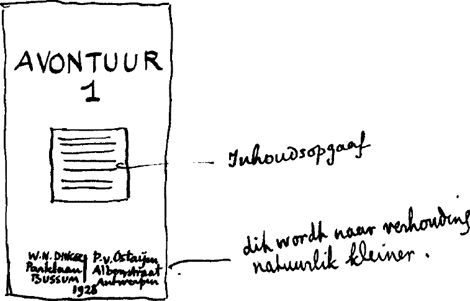 AVONTUUR
1
Inhoudsopgaaf
W.N. DINGER P.v.Ostaijen
Parklaan Albertstraat
BUSSUM Antwerpen
1928
dit wordt naar verhouding
natuurlik kleiner.